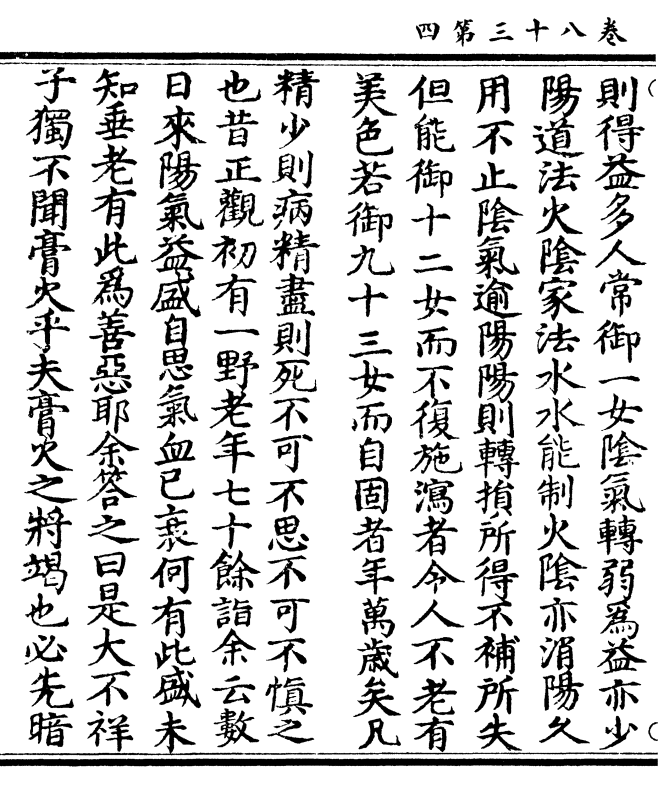 四第三十八卷
則得益多人常御一女陰氣轉弱為益亦少
陽道法火陰家法水水能制火陰亦消陽久
用不止陰氣逾陽陽則轉損所得不補所失
但能御十二女而不復施瀉者令人不老有
美色若御九十三女而自固者年萬歲矣凡
精少則病精盡則死不可不思不可不慎之
也昔正觀初有一野老年七十餘詣余云數
日來陽氣益盛自思氣血已衰何有此盛未
知垂老有此為善惡耶余答之曰是大不祥
子獨不聞膏火乎夫膏火之將竭也必先暗